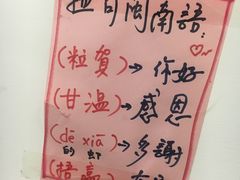 句閩南語:
(粒賀)→你好
(甘溫)→感恩
(dē xiā)→多謝
的 蝦